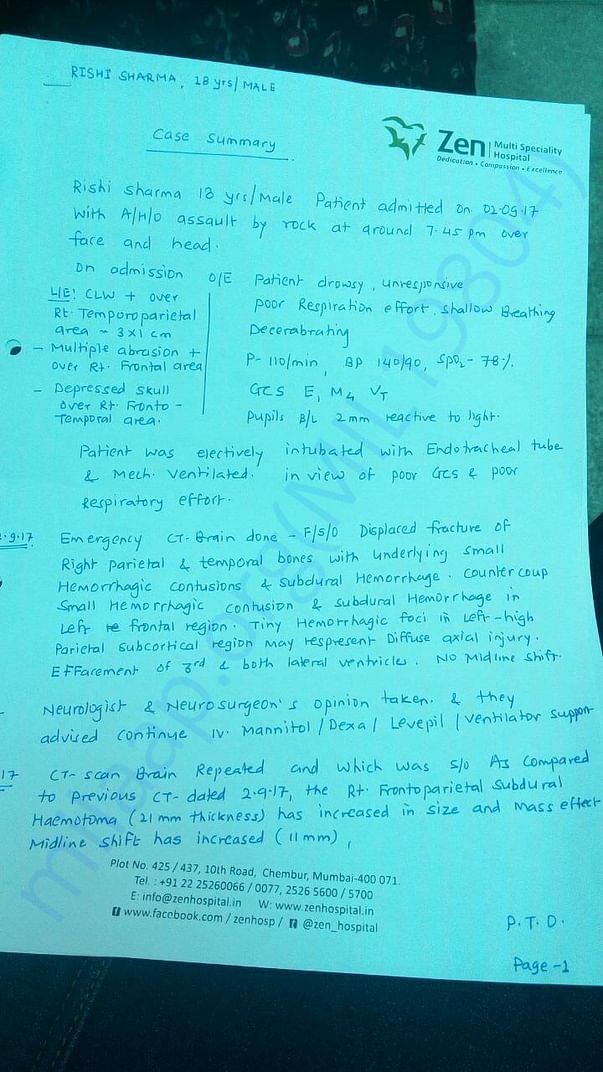 RISHI SHARMA, 18 yrs/MALE
Case Summary
Zen Multi Speciality Hospital
Dedication • Compassion • Excellence
Rishi Sharma 18 yrs/Male Patient admitted on 02.09.17
With A/H/O assault by rock at around 7.45 pm over
face and head.
On admission O/E Patient drowsy, unresponsive
Poor Respiration effort, Shallow Breathing
Decerabrating
P- 110/min, BP 140/90, SpO2- 78%.
GCS E1 M4 VT
Pupils B/L 2mm reactive to light.
L/E: CLW + over
Rt. Temporoparietal
area ~ 3x1 cm
- Multiple abrasion +
over Rt. Frontal area
- Depressed skull
over Rt. Fronto-
Temporal area.
Patient was electively intubated with Endotracheal tube
& Mech. Ventilated. in view of poor GCS & poor
Respiratory effort.
.9.17 Emergency CT-Brain done - F/S/O Displaced fracture of
Right parietal & temporal bones with underlying small
Hemorrhagic contusions & subdural Hemorrhage. Counter coup
Small Hemorrhagic contusion & subdural Hemorrhage in
Left frontal region. Tiny Hemorrhagic foci in Left-high
Parietal subcortical region may respresent Diffuse axial injury.
Effacement of 3rd & both lateral ventricles. No Midline shift.
Neurologist & Neurosurgeon's opinion taken. & they
advised continue IV. Mannitol/Dexa/Levepil/Ventilator support
17 CT-scan Brain Repeated and which was S/O As compared
to previous CT-dated 2.9.17, the Rt. Frontoparietal Subdural
Haemotoma (21 mm thickness) has increased in size and Mass effect
Midline shift has increased (11mm),
Plot No. 425 / 437, 10th Road, Chembur, Mumbai-400 071.
Tel. : +91 22 25260066 / 0077, 2526 5600 / 5700
E: info@zenhospital.in W: www.zenhospital.in
www.facebook.com / zenhosp / @zen_hospital
P.T.O.
Page-1